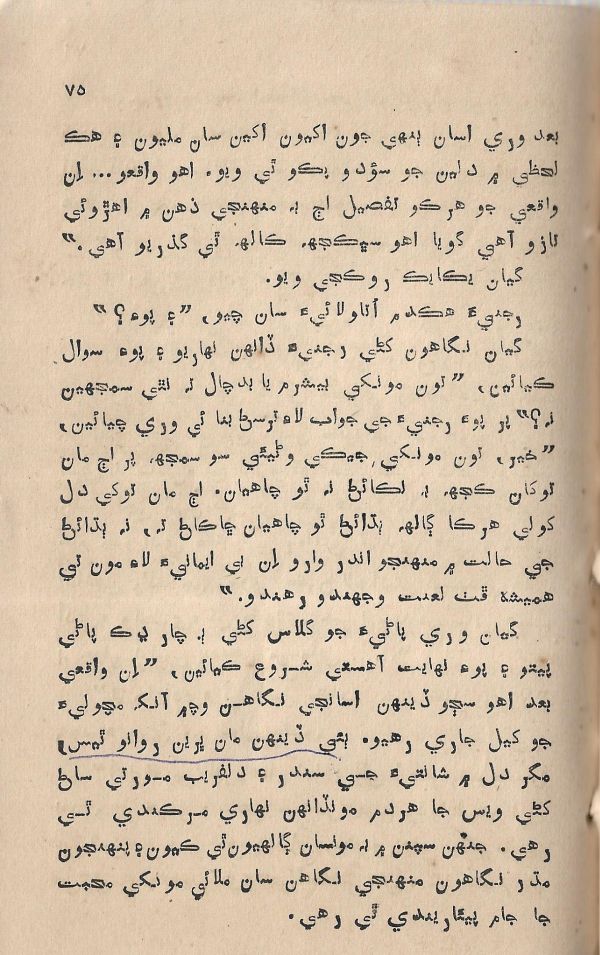 ٧٥
بعد وري اسان ٻنهي جون اکيون اکين سان مليون ۽ هڪ
لحظي ۾ دلين جو سؤدو پڪو ٿي ويو۔ اهو واقعو... اِن
واقعي جو هرڪو تفصيل اڄ بہ منهنجي ذهن ۾ اهڙوئي
تازو آهي گويا اهو سڀڪجهہ ڪالهہ ٿي گذريو آهي۔"
گيان يڪايڪ روڪجي ويو.
رجنيءَ هڪدم اُتاولائيءَ سان چيو، "۽ پوءِ؟"
گيان نگاهون کڻي رجنيءَ ڏانهن نهاريو ۽ پوءِ سوال
ڪيائين، "تون مونکي بيشرم يا بدچال تہ نٿي سمجهين
نہ؟" پر پوءِ رجنيءَ جي جواب لاءِ ترسڻ بنا ئي وري چيائين،
"خير، تون مونکي جيڪي وڻيئي سو سمجهہ پر اڄ مان
توکان ڪجهہ بہ لڪائڻ نہ ٿو چاهيان. اڄ مان توکي دل
کولي هرڪا ڳالهہ ٻڌائڻ ٿو چاهيان ڇاڪاڻ تہ، نہ ٻڌائڻ
جي حالت ۾ منهنجو اندر وارو اِن بي ايمانيءَ لاءِ مون تي
هميشہ ڦٽ لعنت وجهندو رهندو۔"
گيان وري پاڻيءَ جو گلاس کڻي ٻہ چار ڍڪ پاڻي
پيتو ۽ پوءِ نهايت آهستي شروع ڪيائين، "اِن واقعي
بعد اهو سڄو ڏينهن اسانجي نگاهن وچ۾ آنک مچوليءَ
جو کيل جاري رهيو۔ ٻئي ڏينهن مان پرين روانو ٿيس،
مگر دل ۾ شانتيءَ جي سندر ۽ دلفريب مورتي ساڻ
کڻي ويس جا هردم مونڏانهن نهاري مرڪندي ٿي
رهي. جنهن سپنن ۾ بہ مونسان ڳالهيون ٿي ڪيون ۽ پنهنجون
مڌر نگاهون منهنجي نگاهن سان ملائي مونکي محبت
جا جام پيئاريندي ٿي رهي.